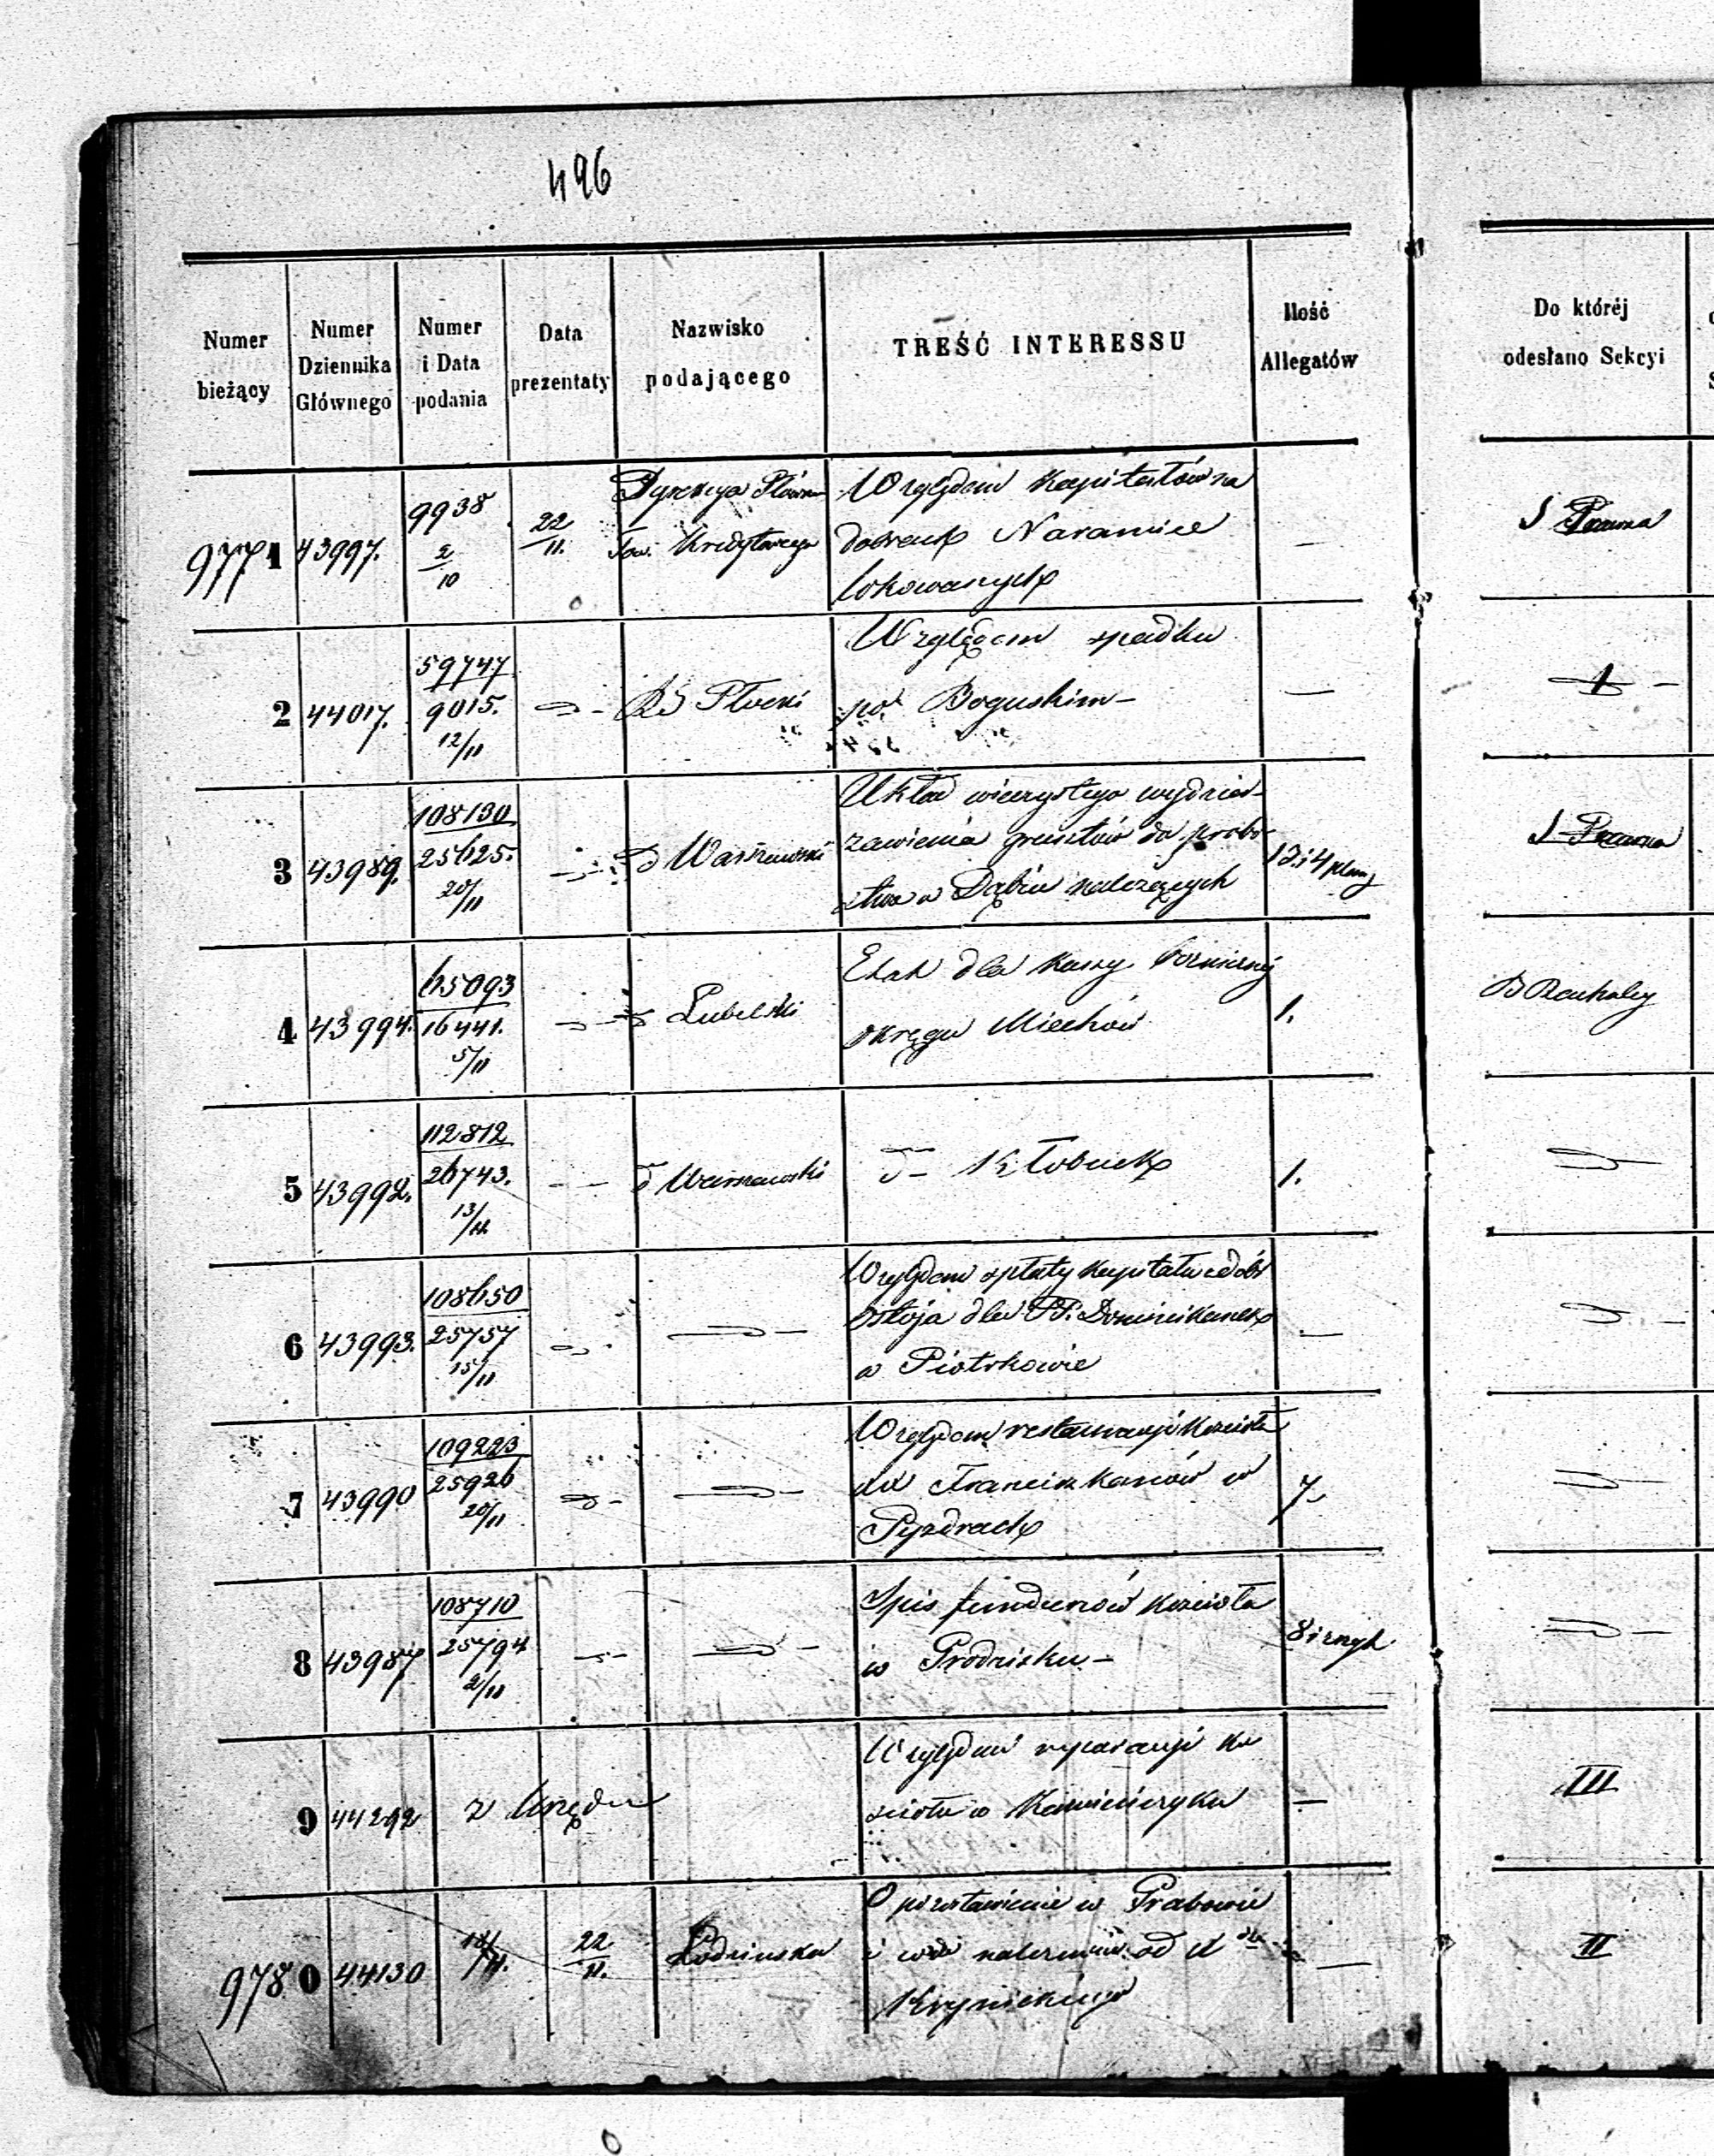 496
Numer bieżący
Numer Dziennika Głównego
Numer i Data podania
Data prezentaty
Nazwisko podającego
TREŚĆ INTERESSU
Ilość Allegatów
Do któréj odesłano Sekcyi
9771 43997. 9938 2/10 22/11. Dyrekcya Główna Tow. Kredytowego
Względem kapitałów na
dobrach Naramice
lokowanych
— S Prawna
2 44017. 59747 9015. 12/11 RG Płocki
Względem spadku
po Boguskim —
—
3 43989. 108130 25625. 20/11 d Warszawski
Układ wieczystego wydzier-
zawienia gruntów do probo-
stwa w Dąbiu należących
13 i 4 plany S Prawna
4 43994. 65093 16441. 5/11 d Lubelski
Etat dla kassy
okręgu Miechów
1.
5 43992. 112812 26743. 13/11 d Warszawski
d — Kłobuck
1.
6 43993. 108650 25757 15/11
Względem spłaty kapitału z dóbr
dla PP. Dominikanek
w Piotrkowie
—
7 43990 109223 25926 20/11
Względem restauracyi kościoła
Franciszkanów w
Pyzdrach
7
8 43987 108710 25794 2/11
Spis funduszów kościoła
w Grodzisku —
8 i
9 44292 z Urzędu
Względem reparacyi ko
scioła w Kamieńczyku
— III
9780 44130 22/11.
O pozostawienie w Grabowie
od
Krynickiego
— II